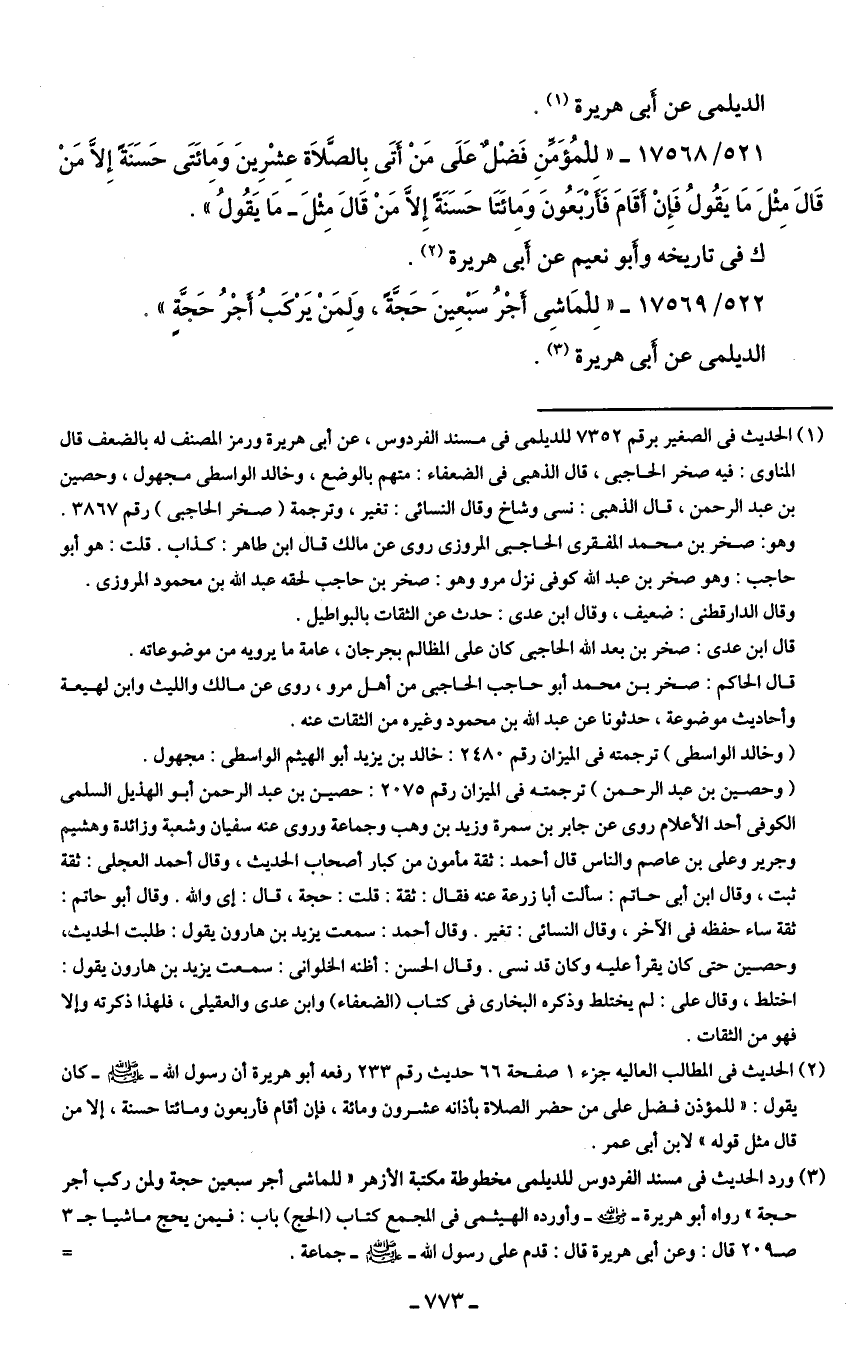 الديلمى عن أَبى هريرة (١) .
١٧٥٦٨/٥٢١ ـ « لِلْمُؤَمِّنِ فَضْلٌ عَلَى مَنْ أَتَى بِالصَّلاَةِ عِشْرِينَ وَمِائَتَى حَسَنَةً إِلاَّ مَنْ
قَالَ مِثْلَ مَا يَقُولُ فَإِنْ أَقَامَ فَأَرْبَعُونَ وَمِائَتَا حَسَنَةً إِلاَّ مَنْ قَالَ مِثْلَ ـ مَا يَقُولُ » .
ك فى تاريخه وأَبو نعيم عن أَبى هريرة (٢) .
١٧٥٦٩/٥٢٢ ـ « لِلْمَاشِى أَجْرُ سَبْعِينَ حَجَّةً ، وَلِمَنْ يَرْكَبُ أَجْرُ حَجَّةٍ » .
الديلمى عن أَبى هريرة (٣) .
(١) الحديث فى الصغير برقم ٧٣٥٢ للديلمى فى مسند الفردوس ، عن أبى هريرة ورمز المصنف له بالضعف قال
المناوى : فيه صخر الحاجبى ، قال الذهبى فى الضعفاء : متهم بالوضع ، وخالد الواسطى مجهول ، وحصين
بن عبد الرحمن ، قال الذهبى : نسى وشاخ وقال النسائى : تغير ، وترجمة ( صخر الحاجبى ) رقم ٣٨٦٧ .
وهو: صخر بن محمد المنقرى الحاجبى المروزى روى عن مالك قال ابن طاهر : كذاب . قلت : هو أبو
حاجب : وهو صخر بن عبد الله كوفى نزل مرو وهو : صخر بن حاجب لحقه عبد الله بن محمود المروزى .
وقال الدارقطنى : ضعيف ، وقال ابن عدى : حدث عن الثقات بالبواطيل .
قال ابن عدى : صخر بن بعد الله الحاجبى كان على المظالم بجرجان ، عامة ما يرويه من موضوعاته .
قال الحاكم : صخر بن محمد أبو حاجب الحاجبى من أهل مرو ، روى عن مالك والليث وابن لهيعة
وأحاديث موضوعة ، حدثونا عن عبد الله بن محمود وغيره من الثقات عنه .
( وخالد الواسطى ) ترجمته فى الميزان رقم ٢٤٨٠ : خالد بن يزيد أبو الهيثم الواسطى : مجهول .
( وحصين بن عبد الرحمن ) ترجمته فى الميزان رقم ٢٠٧٥ : حصين بن عبد الرحمن أبو الهذيل السلمى
الكوفى أحد الأعلام روى عن جابر بن سمرة وزيد بن وهب وجماعة وروى عنه سفيان وشعبة وزائدة وهشيم
وجرير وعلى بن عاصم والناس قال أحمد : ثقة مأمون من كبار أصحاب الحديث ، وقال أحمد العجلى : ثقة
ثبت ، وقال ابن أبى حاتم : سألت أبا زرعة عنه فقال : ثقة : قلت : حجة ، قال : إى والله . وقال أبو حاتم :
ثقة ساء حفظه فى الآخر ، وقال النسائى : تغير . وقال أحمد : سمعت يزيد بن هارون يقول : طلبت الحديث،
وحصين حتى كان يقرأ عليه وكان قد نسى . وقال الحسن : أظنه الخلوانى : سمعت يزيد بن هارون يقول :
اختلط ، وقال على : لم يختلط وذكره البخارى فى كتاب (الضعفاء) وابن عدى والعقيلى ، فلهذا ذكرته وإلا
فهو من الثقات .
(٢) الحديث فى المطالب العاليه جزء ١ صفحة ٦٦ حديث رقم ٢٣٣ رفعه أبو هريرة أن رسول الله ـ ﷺ ـ كان
يقول : « للمؤذن فضل على من حضر الصلاة بأذانه عشرون ومائة ، فإن أقام فأربعون ومائتا حسنة ، إلا من
قال مثل قوله » لابن أبى عمر .
(٣) ورد الحديث فى مسند الفردوس للديلمى مخطوطة مكتبة الأزهر « للماشى أجر سبعين حجة ولمن ركب أجر
حجة » رواه أبو هريرة ـ رضي الله عنه ـ وأورده الهيثمى فى المجمع كتاب (الحج) باب : فيمن يحج ماشيا جـ ٣
صـ٢٠٩ قال : وعن أبى هريرة قال : قدم على رسول الله ـ ﷺ ـ جماعة . =
ـ ٧٧٣ ـ